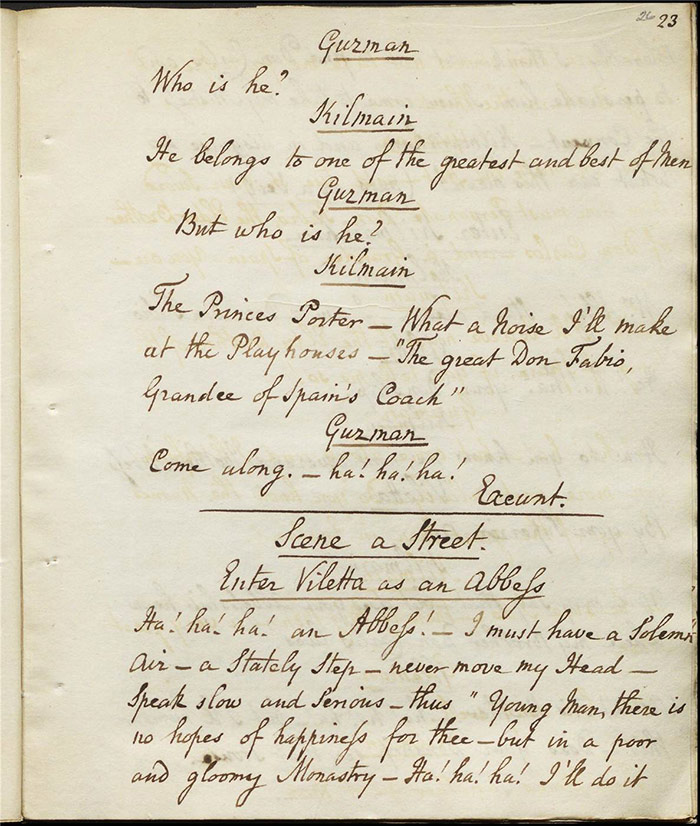 26 23
Guzman
Who is he?
Kilmain
He belongs to one of the greatest and best of Men
Guzman
But who is he?
Kilmain
The Princes Porter – What a Noise I'll make
at the Playhouses – "The great Don Fabio,
Grandee of Spain's Coach"
Guzman
Come along. – ha! ha! ha!
Exeunt.
Scene a Street.
Enter Viletta as an Abbeſs
Ha! ha! ha! an Abbeſs! – I must have a Solemn
Air – a Stately Step – never move my Head –
Speak slow and Serious – thus "Young Man, there is
no hopes of happineſs for thee – but in a poor
and gloomy Monastry – Ha! ha! ha! I'll do it